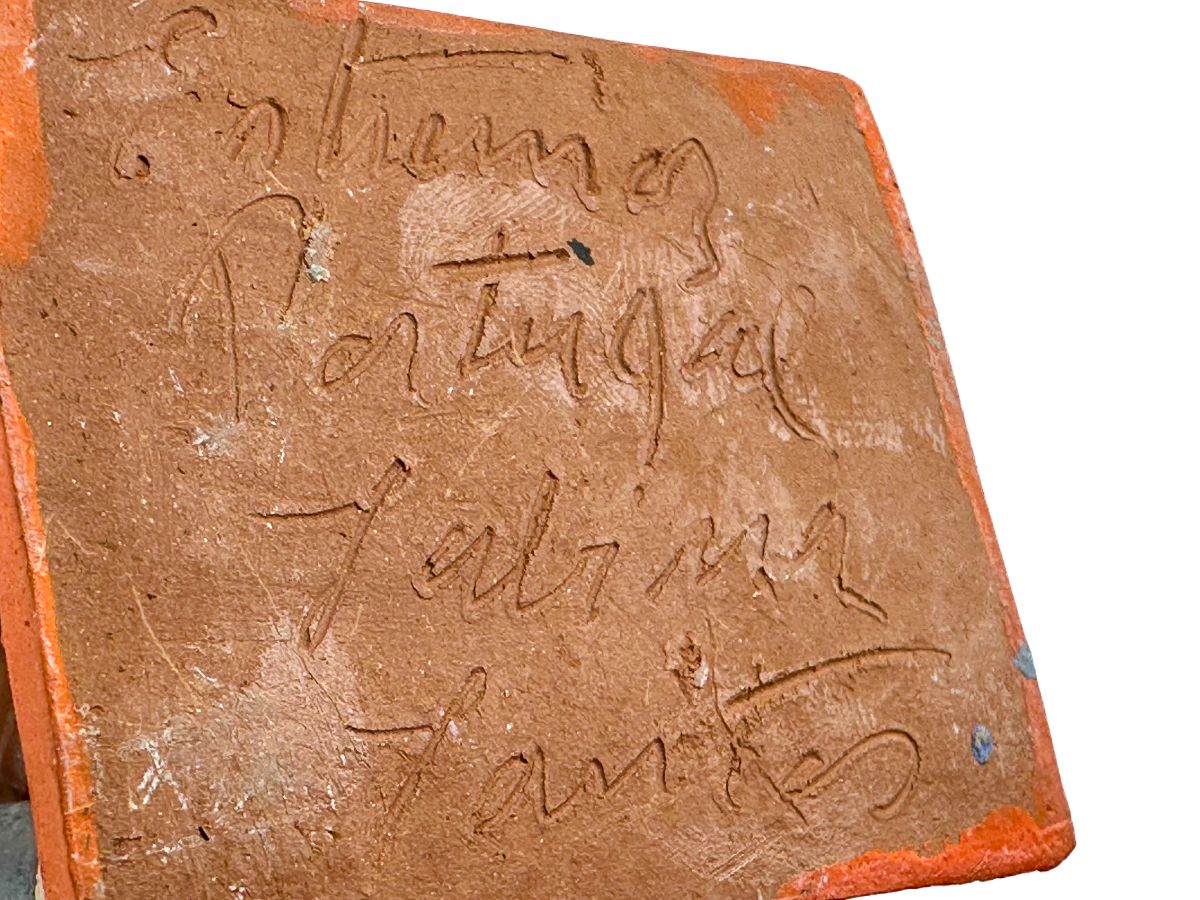 Estremoz
Portugal
Sabina
Santos